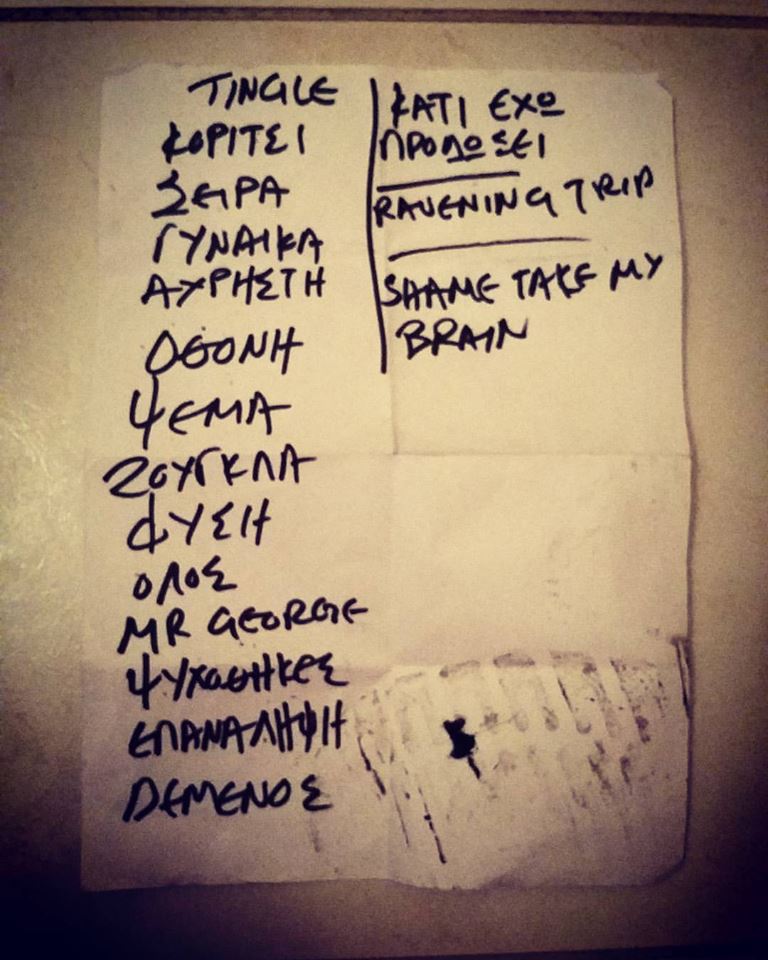 TINGLE
ΚΟΡΙΤΣΙ
ΣΕΙΡΑ
ΓΥΝΑΙΚΑ
ΑΧΡΗΣΤΗ
ΟΘΟΝΗ
ΨΕΜΑ
ΖΟΥΓΚΛΑ
ΦΥΣΗ
ΟΛΟΣ
MR GEORGE
ΨΥΧΩΘΗΚΕΣ
ΕΠΑΝΑΛΗΨΗ
ΔΕΜΕΝΟΣ
ΚΑΤΙ ΕΧΩ
ΠΡΟΔΩΣΕΙ
RAVENING TRIP
SHAME TAKE MY
BRAIN